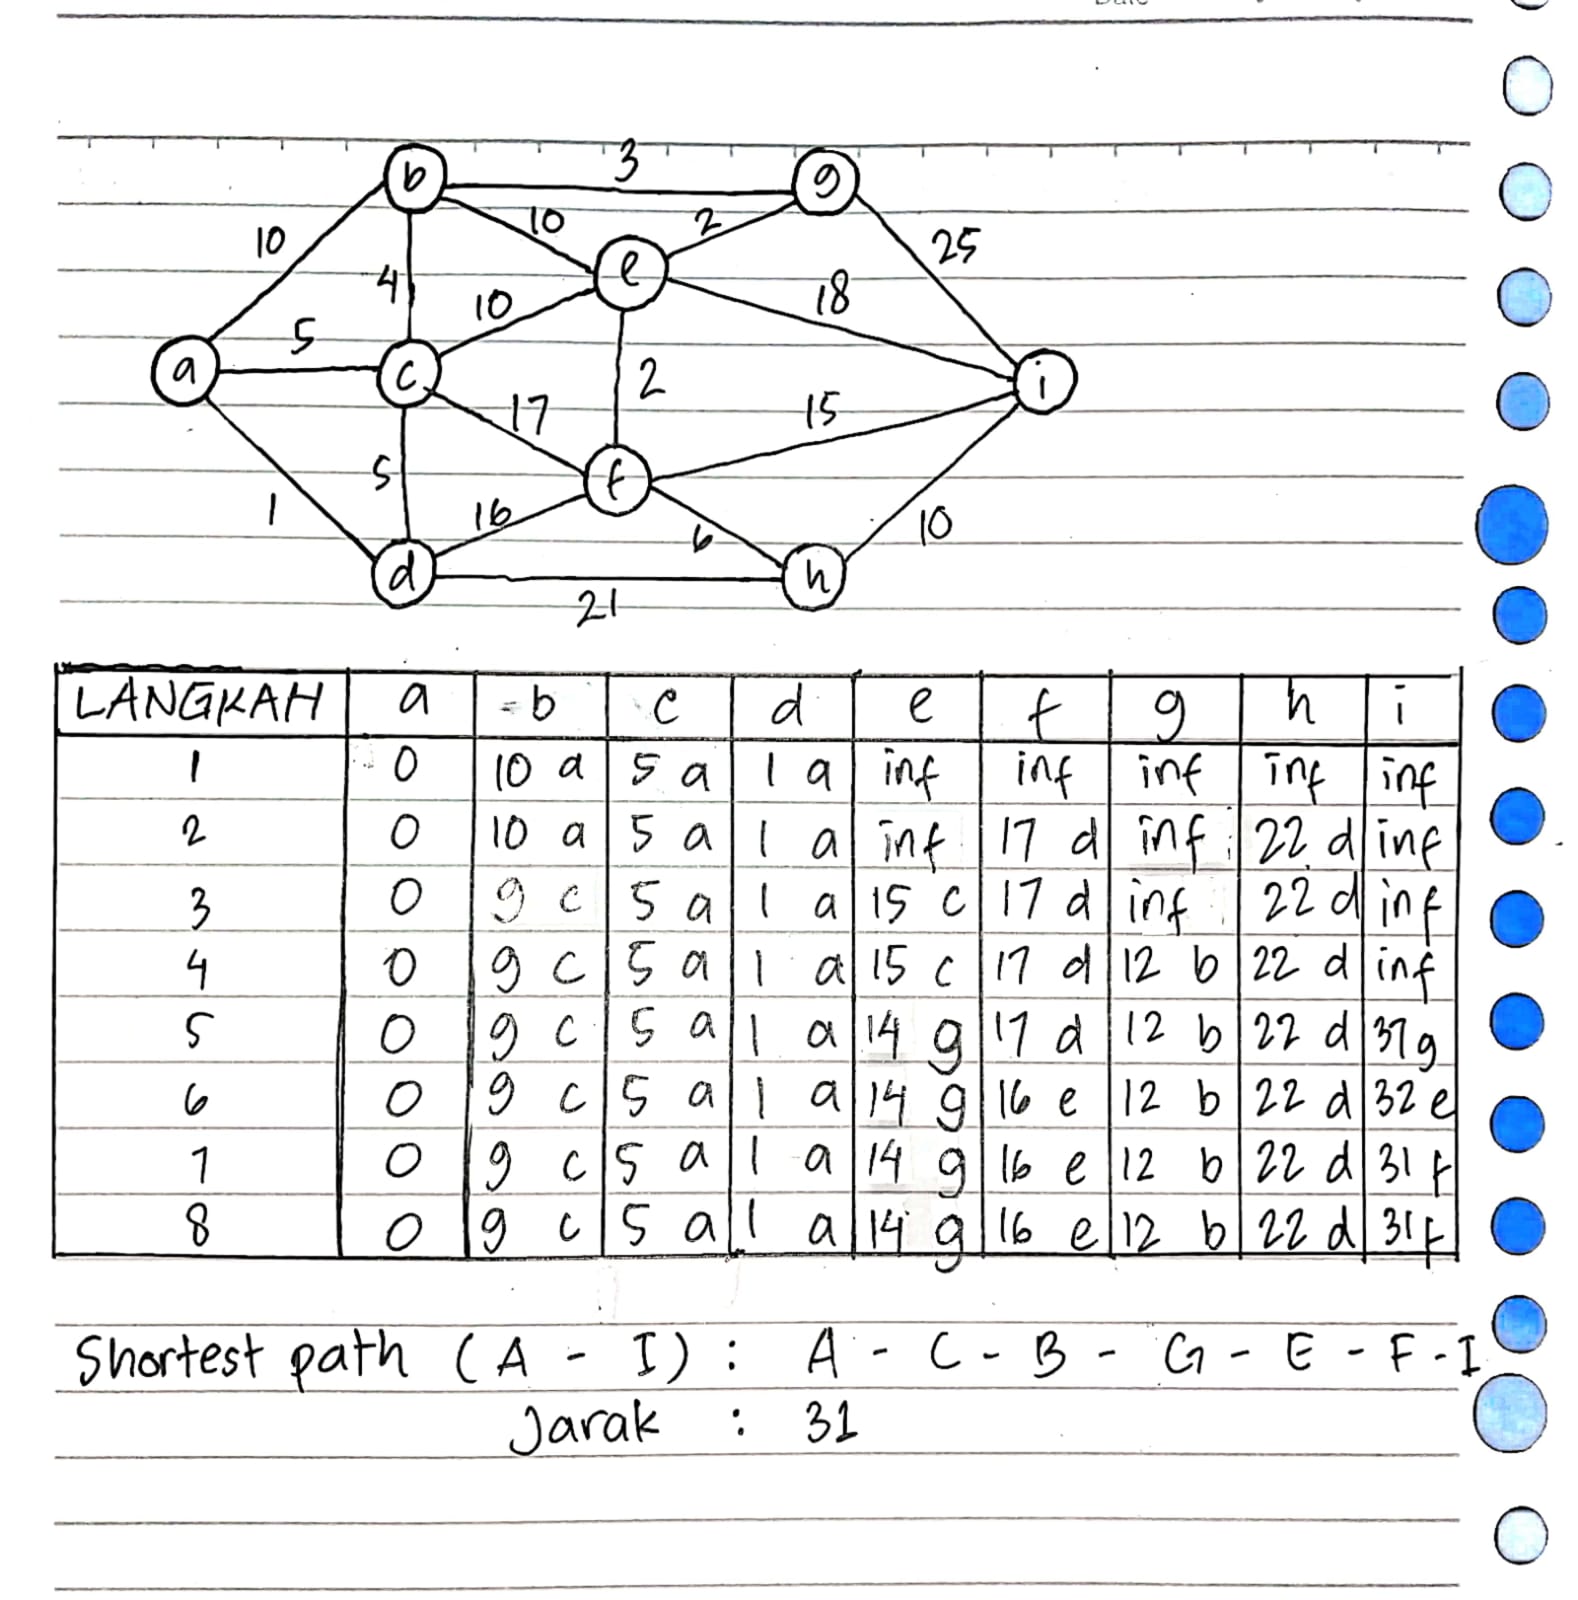 3
b
g
10
10
2
25
e
4
10
18
5
a
c
i
17
2
15
f
5
1
16
6
10
d
h
21
LANGKAH a b c d e f g h i
1 0 10 a 5 a 1 a inf inf inf inf inf
2 0 10 a 5 a 1 a inf 17 d inf 22 d inf
3 0 9 c 5 a 1 a 15 c 17 d inf 22 d inf
4 0 9 c 5 a 1 a 15 c 17 d 12 b 22 d inf
5 0 9 c 5 a 1 a 14 g 17 d 12 b 22 d 37 g
6 0 9 c 5 a 1 a 14 g 16 e 12 b 22 d 32 e
7 0 9 c 5 a 1 a 14 g 16 e 12 b 22 d 31 f
8 0 9 c 5 a 1 a 14 g 16 e 12 b 22 d 31 f
Shortest path (A - I) : A - C - B - G - E - F - I
Jarak : 31